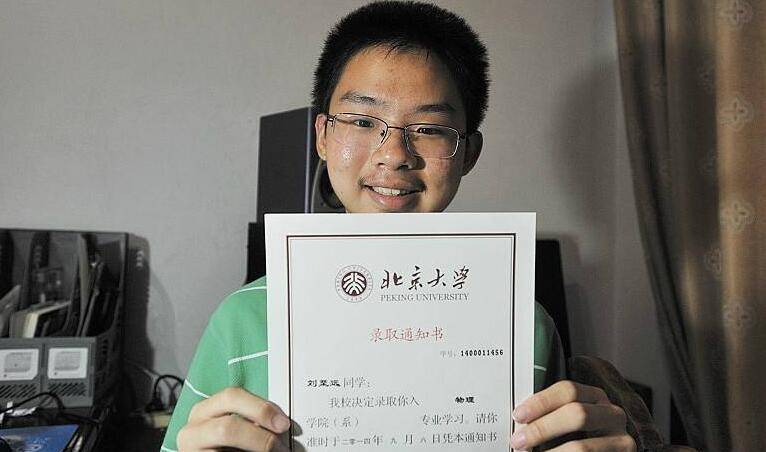 北京大学
PEKING UNIVERSITY
录取通知书
学号：1400011456
刘至远同学：
我校决定录取你入 物理
学院（系） 专业学习。请你
准时于二零一四年九月六日凭本通知书